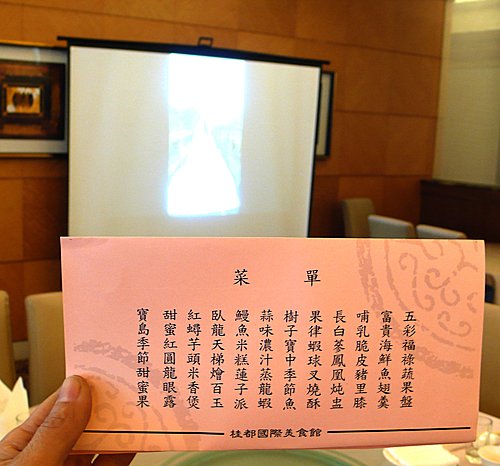 菜單
五彩福祿蔬果盤
富貴海鮮魚翅羹
哺乳脆皮豬里膝
長白茶鳳凰炖盅
果律蝦球叉燒酥
樹子寶中季節魚
蒜味濃汁蒸龍蝦
鰻魚米糕蓮子派
臥龍天梯燴百玉
紅蟳芋頭米香煲
甜蜜紅圓龍眼露
寶島季節甜蜜果
桂都國際美食館